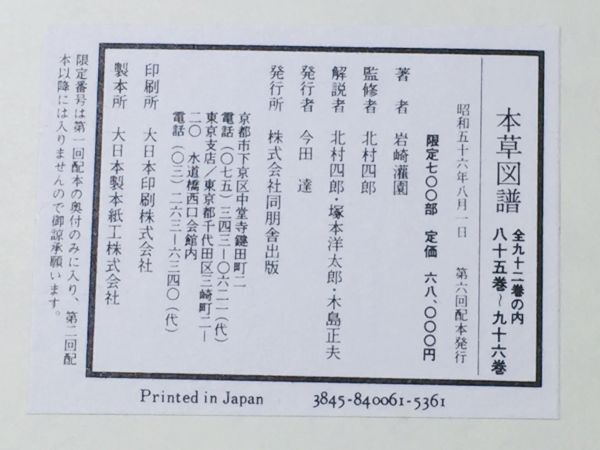 本草図譜
全九十二巻の内
八十五巻〜九十六巻
昭和五十六年八月一日　第六回配本発行
限定七〇〇部　定価　六八、〇〇〇円
著　者　岩崎灌園
監修者　北村四郎
解説者　北村四郎・塚本洋太郎・木島正夫
発行者　今田　達
発行所　株式会社同朋舎出版
京都市下京区中堂寺鍵田町二
電話（〇七五）三四三―〇六二一（代）
東京支店／東京都千代田区三崎町二―
二〇　水道橋西口会館内
電話（〇三）二六三―六三四〇（代）
印刷所　大日本印刷株式会社
製本所　大日本製本紙工株式会社
限定番号は第一回配本の奥付のみに入り、第二回配
本以降には入りませんので御諒承願います。
Printed in Japan　3845-840061-5361